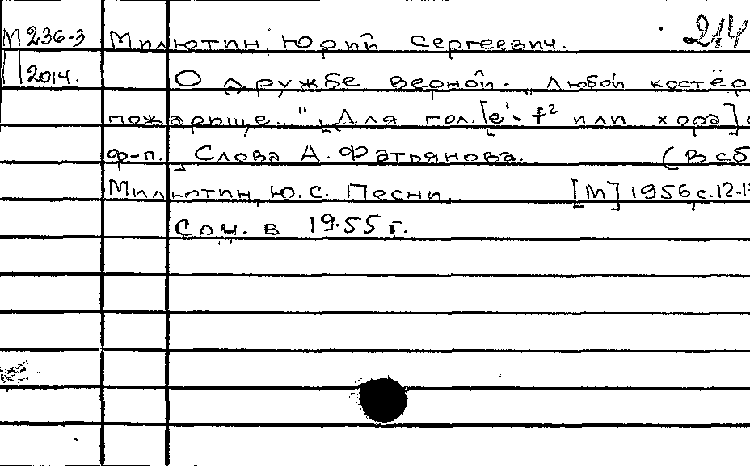 М 236-3 Милютин Юрий Сергеевич. 214
2014. О дружбе верной. „Любой костёр
пожарище..." Для гол. [e¹-f² или хора] с
ф-п. Слова А. Фатьянова. (В сб
Милютин, Ю.С. Песни. [М] 1956, с. 12-1
Соч. в 1955 г.